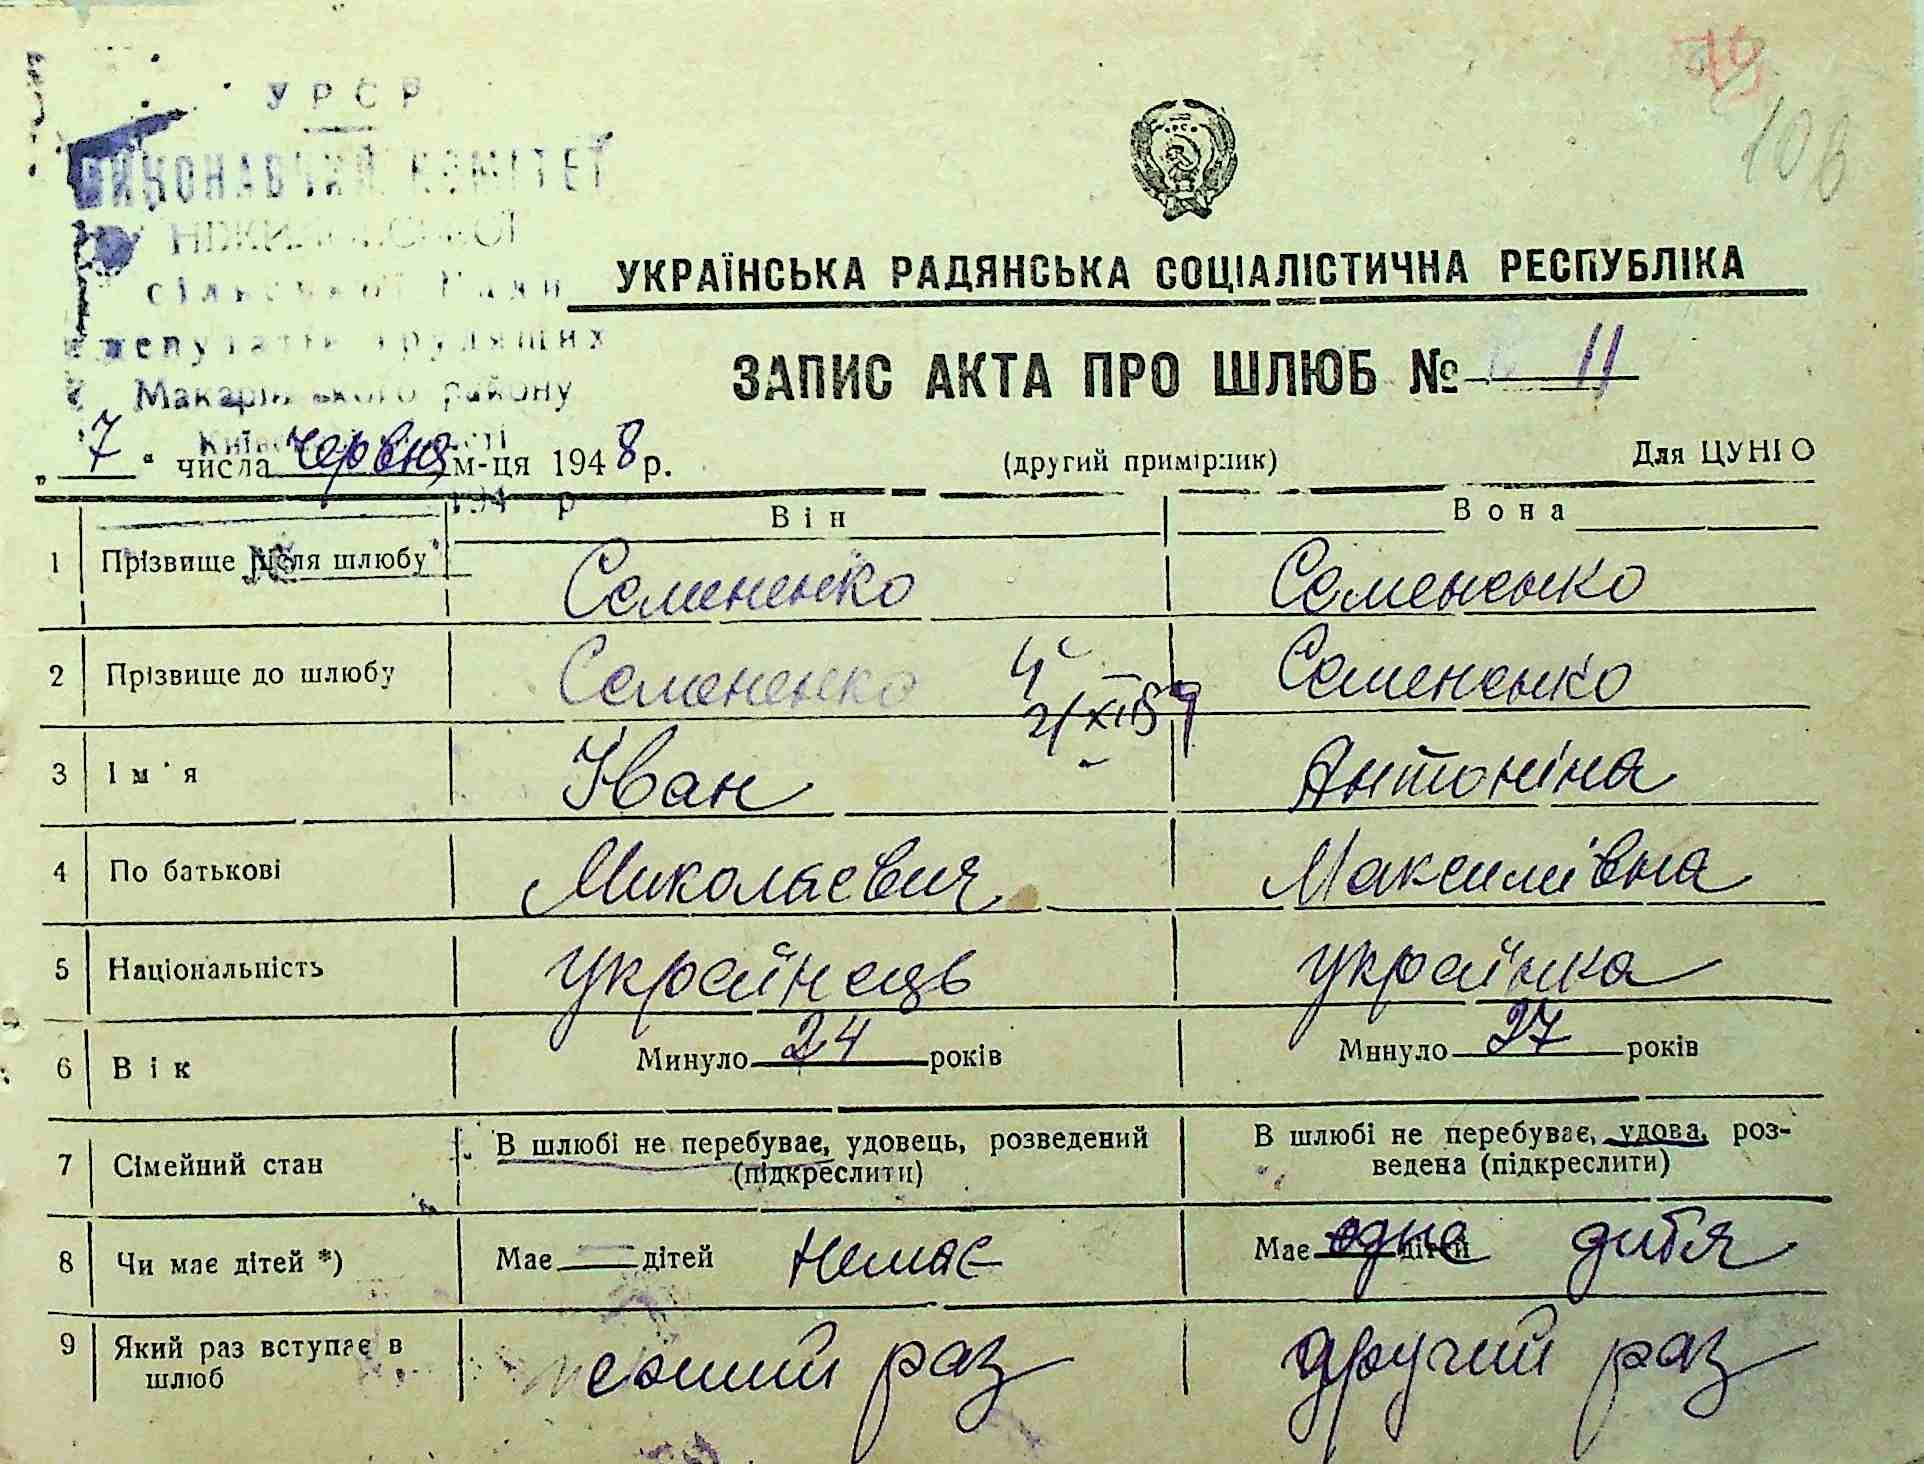 УРСР
ВИКОНАВЧИЙ КОМІТЕТ
сільської Ради
депутатів трудящих
Макарівського району
194 р
79
108
УКРАЇНСЬКА РАДЯНСЬКА СОЦІАЛІСТИЧНА РЕСПУБЛІКА
ЗАПИС АКТА ПРО ШЛЮБ № 11
„ 7 " числа червня м-ця 1948 р. (другий примірник) Для ЦУНГО
Він Вона
1 Прізвище після шлюбу Семененко Семененко
2 Прізвище до шлюбу Семененко Семененко
3 Ім'я Іван Антоніна
4 По батькові Миколаєвич Максимівна
5 Національність українець українка
6 Вік Минуло 24 років Минуло 27 років
7 Сімейний стан В шлюбі не перебуває, удовець, розведений (підкреслити) В шлюбі не перебуває, удова, роз-
ведена (підкреслити)
8 Чи має дітей *) Має — дітей немає Має одне дітей дитя
9 Який раз вступає в шлюб раз другий раз